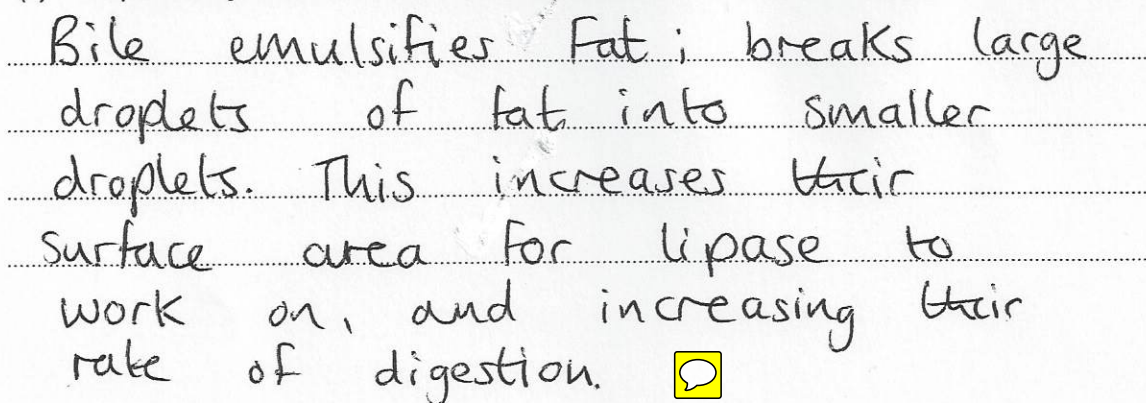 Bile emulsifies fat; breaks large
droplets of fat into smaller
droplets. This increases their
surface area for lipase to
work on, and increasing their
rate of digestion.